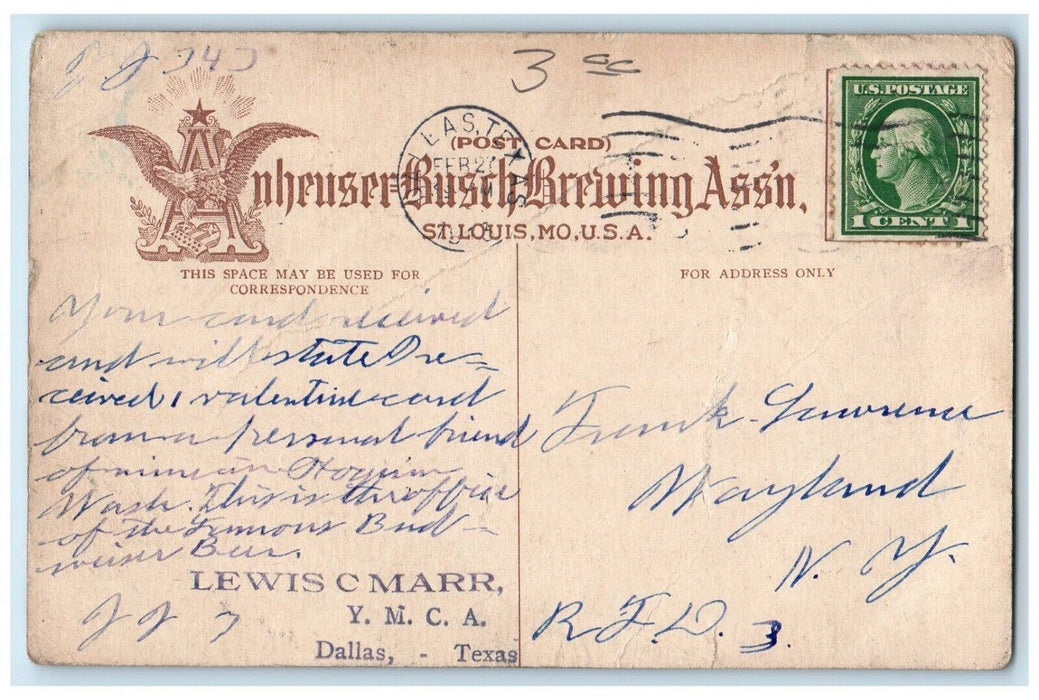 3
DALLAS, TEXAS
FEB 27
(POST CARD)
Anheuser-Busch Brewing Ass'n.
ST. LOUIS, MO, U.S.A.
U.S. POSTAGE
1 CENT 1
THIS SPACE MAY BE USED FOR
CORRESPONDENCE
FOR ADDRESS ONLY
Your card received
and will state I re-
ceived 1 valentine card
from a personal friend
of mine in Hoquiam
Wash. This is the office
of the Famous Bud-
wiser Beer.
LEWIS C MARR,
Y. M. C. A.
Dallas, - Texas
Frank Lawrence
Wayland
N. Y.
R.F.D. 3.